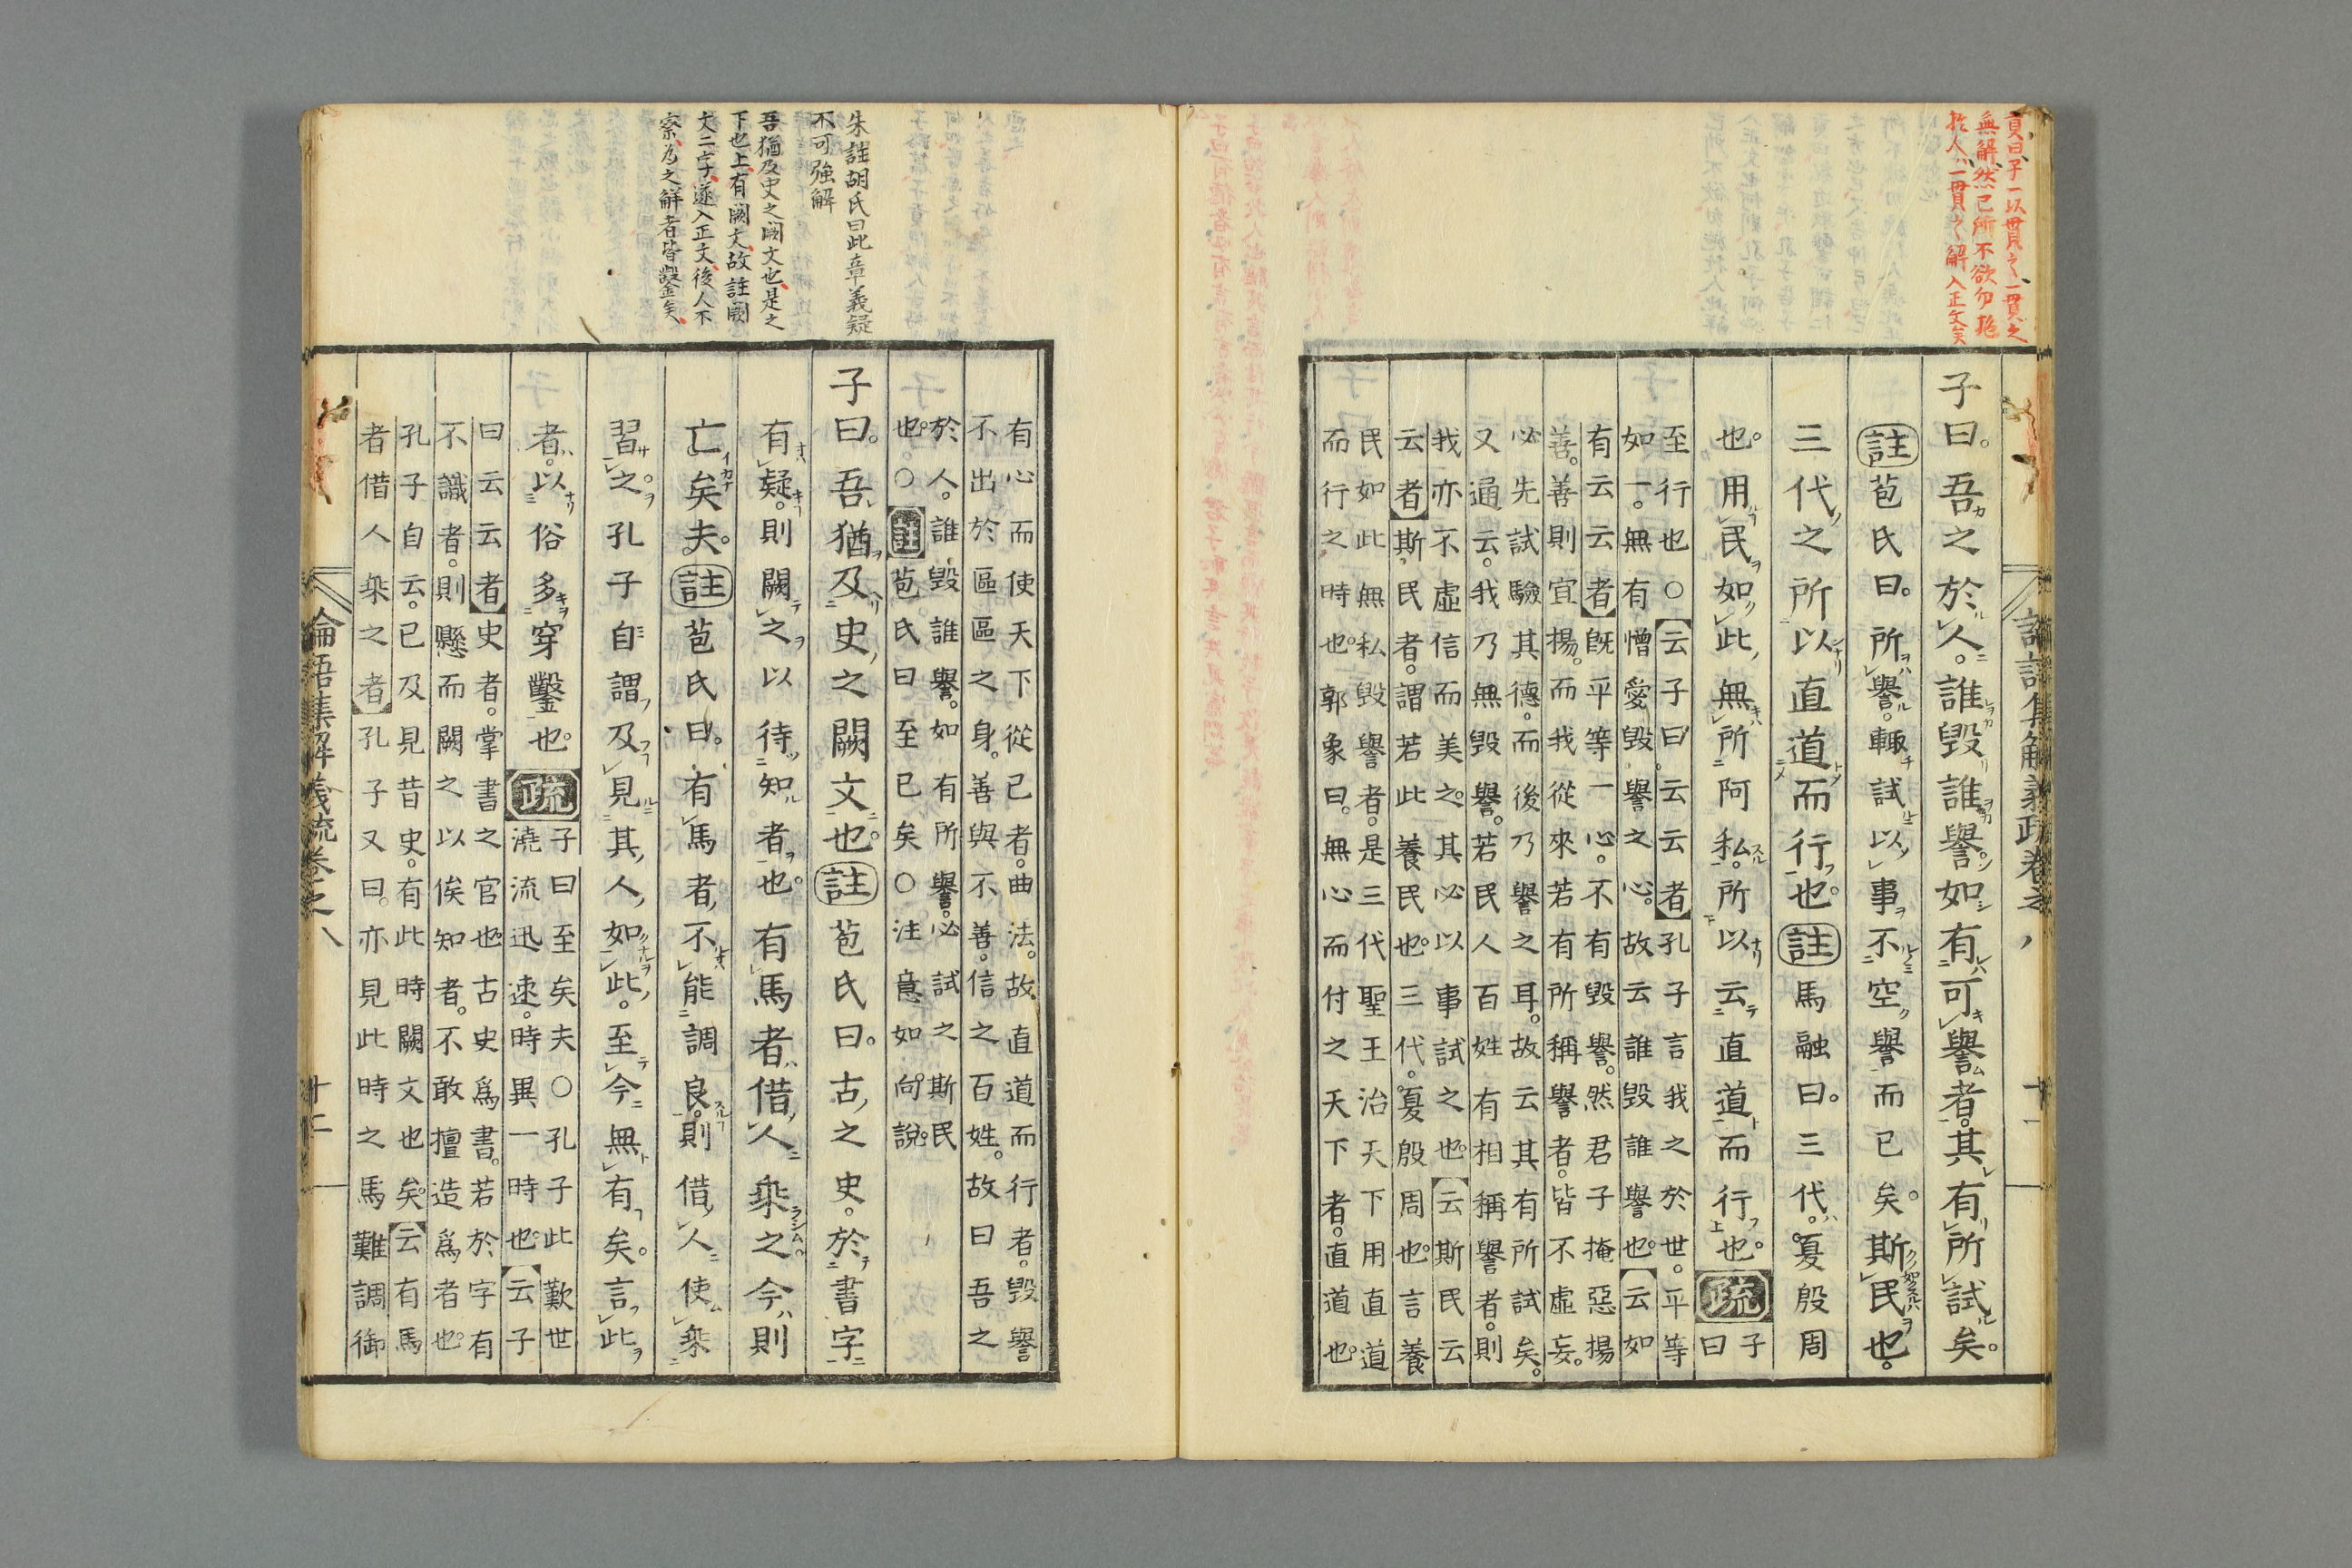 貢曰子一以貫之一貫之
無解然己所不欲勿施
於人一貫之解入正文矣
子曰。吾之於人。誰毀誰譽。如有可譽者。其有所試矣。
註苞氏曰。所譽。輙試以事不空譽而已矣。斯民也。
三代之所以直道而行也。註馬融曰。三代。夏殷周
也。用民如此無所阿私。所以云直道而行也。疏子
曰
至行也○云子曰云云者孔子言我之於世。平等
如一。無有憎愛毀譽之心。故云誰毀誰譽也。云如
有云云者既平等一心。不有毀譽。然君子掩惡揚
善。善則宜揚。而我從來若有所稱譽者。皆不虛妄。
必先試驗其德。而後乃譽之耳。故云其有所試矣。
又通云。我乃無毀譽。若民人百姓有相稱譽者。則
我亦不虛信而美之。其必以事試之也。云斯民云
云者斯民者。謂若此養民也。三代。夏殷周也。言養
民如此無私毀譽者。是三代聖王治天下用直道
而行之時也。郭象曰。無心而付之天下者。直道也。
論語集解義疏卷之八
十一
朱註胡氏曰此章義疑
不可強解
吾猶及史之闕文也是之
下也上有闕文故註闕
文二字遂入正文後人不
察為之解者皆鑿矣
有心而使天下從已者。曲法。故直道而行者。毀譽
不出於區區之身。善與不善。信之百姓。故曰吾之
於人。誰毀誰譽。如有所譽。必試之斯民
也。○註苞氏曰至已矣○注意如向說。
子曰。吾猶及史之闕文也。註苞氏曰。古之史。於書字
有疑。則闕之以待知者也。有馬者借人乘之今則
亡矣夫。註苞氏曰。有馬者不能調良。則借人使乘
習之。孔子自謂及見其人如此。至今無有矣。言此
者。以俗多穿鑿也。疏子曰至矣夫○孔子此歎世
澆流迅速。時異一時也。云子
曰云云者史者。掌書之官也古史爲書。若於字有
不識者。則懸而闕之以俟知者。不敢擅造爲者也。
孔子自云。已及見昔史。有此時闕文也矣。云有馬
者借人乘之者孔子又曰。亦見此時之馬難調御
論語集解義疏卷之八
十二